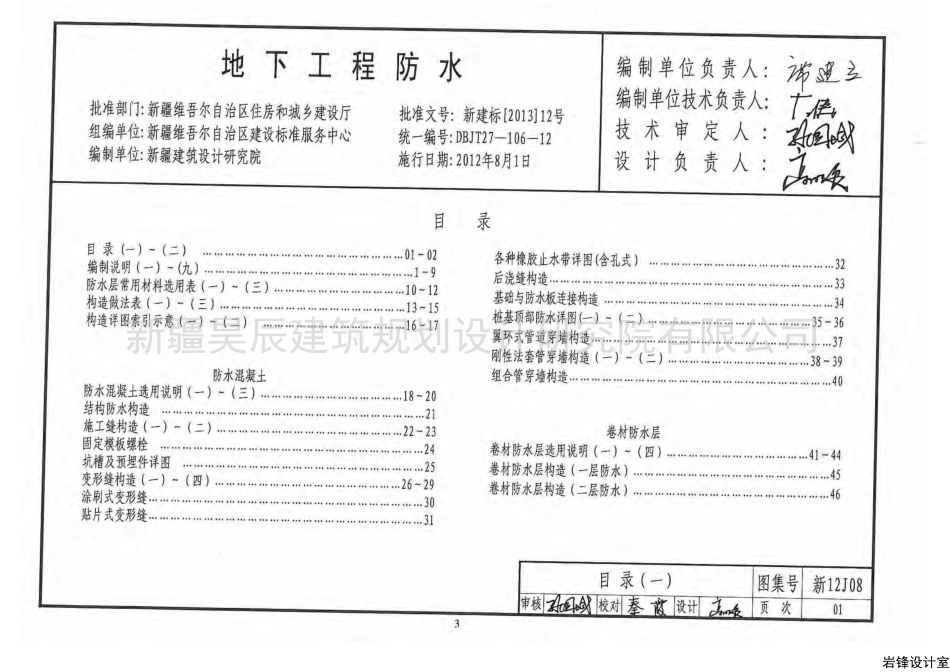 地下工程防水
批准部门:新疆维吾尔自治区住房和城乡建设厅
组编单位:新疆维吾尔自治区建设标准服务中心
编制单位:新疆建筑设计研究院
批准文号: 新建标[2013]12号
统一编号:DBJT27-106-12
施行日期:2012年8月1日
编制单位负责人:
编制单位技术负责人:
技术审定人:
设计负责人:
目 录
目 录 (一)~(二) ……………………………01-02
编制说明(一)~(九)……………………………1-9
防水层常用材料选用表(一)~(三)……………………10-12
构造做法表(一)~(三)……………………………13-15
构造详图索引示意(一)~(二)……………………16-17
防水混凝土
防水混凝土选用说明(一)~(三)……………………18-20
结构防水构造 ……………………………21
施工缝构造(一)~(二)……………………………22-23
固定模板螺栓 ……………………………24
坑槽及预埋件详图 ……………………………25
变形缝构造(一)~(四)……………………………26-29
涂刷式变形缝……………………………30
贴片式变形缝……………………………31
各种橡胶止水带详图(含孔式) ……………………32
后浇缝构造……………………………33
基础与防水板连接构造 ……………………………34
桩基顶部防水详图(一)~(二)……………………35-36
翼环式管道穿墙构造……………………………37
刚性法套管穿墙构造(一)~(二)……………………38-39
组合管穿墙构造……………………………40
卷材防水层
卷材防水层选用说明(一)~(四)……………………41-44
卷材防水层构造(一层防水)……………………45
卷材防水层构造(二层防水)……………………46
新疆昊辰建筑规划设计研究院有限公司
目录(一)
图集号 新12J08
审核 校对 秦 设计
页 次 01
3
岩锋设计室